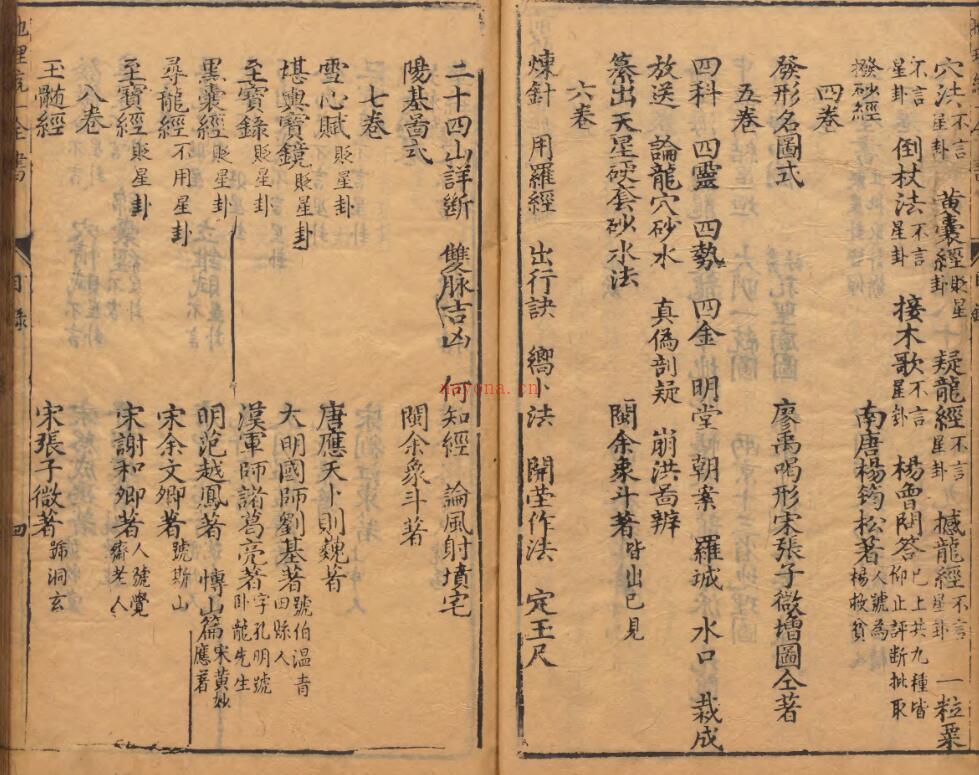 穴法 不言星卦 黄囊經 貶星卦 疑龍經 不言星卦 撼龍經 不言星卦 一粒粟
不言星卦 倒杖法 不言星卦 接木歌 不言星卦 楊曾問答 已上共九種皆仰止評断批取
撥砂經 南唐楊筠松著 人號為楊救貧
四卷
發形名圖式 廖禹喝形宋張子微增圖仝著
五卷
四科 四靈 四勢 四金 明堂 朝案 羅城 水口 裁成
放送 論龍穴砂水 真偽剖疑 崩洪啚辨
纂出天星硬套砂水法 閩余象斗著 皆出己見
六卷
煉針 用羅經 出行訣 嚮卜法 開塋作法 定玉尺
二十四山詳斷 雙脉吉凶 何知經 論風射墳宅
陽基啚式 閩余象斗著
七卷
雪心賦 貶星卦 唐應天卜則魏著
堪輿寶鏡 貶星卦 大明國師劉基著 號伯温青田縣人
至寶錄 貶星卦 漢軍師諸葛亮著 字孔明號卧龍先生
黑囊經 貶星卦 明范越鳳著 愽山篇 宋黄妙應著
尋龍經 不用星卦 宋余文卿著 號斯山
至寶經 貶星卦 宋謝和卿著 人號覺齋老人
八卷
玉髄經 宋張子微著 號洞玄
地理統一全書
目錄
四
nayona.cn